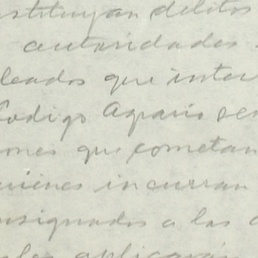 nstituyan delitos
autoridades
leados que inter
Codigo Agrario se
ones que cometan
quienes incurran
nsignados a las
aplicarán